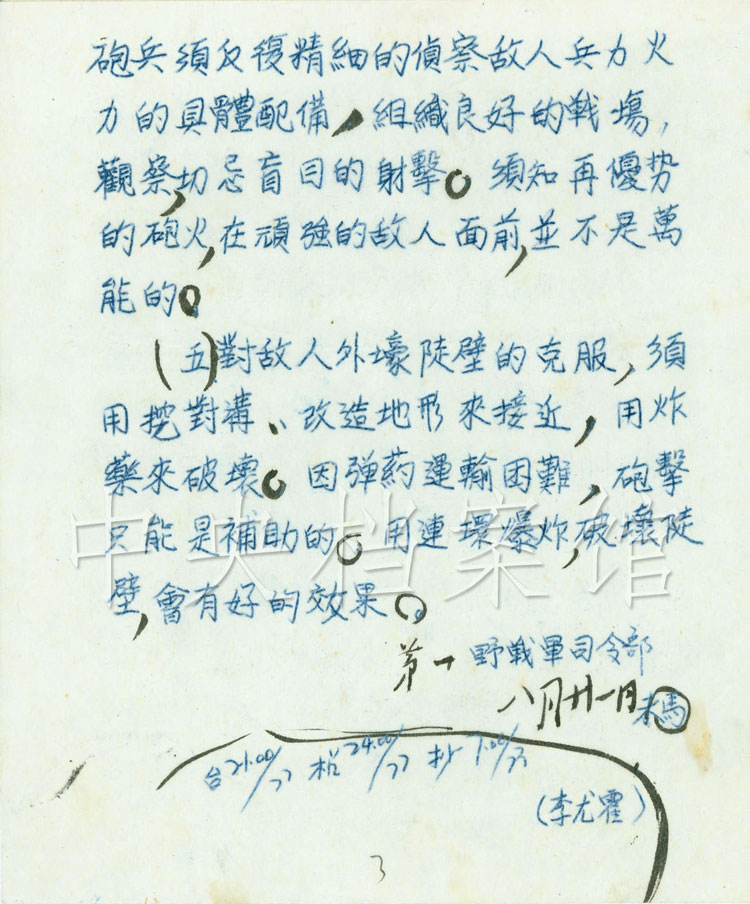 砲兵須反復精細的偵察敵人兵力火
力的具體配備，組織良好的戰場，
觀察，切忌盲目的射擊。須知再優势
的砲火，在頑強的敵人面前，並不是萬
能的。
（五）對敵人外壕陡壁的克服，須
用挖對溝、改造地形來接近，用炸
藥來破壞。因弹药運輸困難，砲擊
只能是補助的。用連環爆炸，破壞陡
壁，會有好的效果。
中央档案馆
第一野戰軍司令部
八月廿一日未馬
台21.00/22 24.00/22 抄7.00/23
（李尤霍）
3